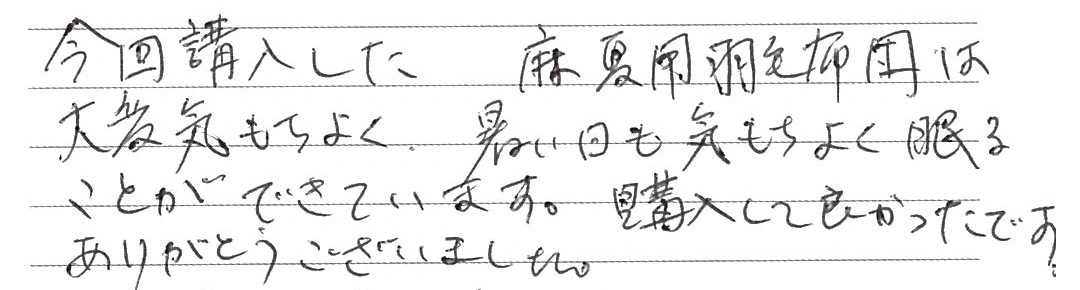 今回講入した 麻夏用羽毛布団は
大変気もちよく、暑い日も気もちよく眠る
ことができています。購入して良かったです。
ありがとうございました。